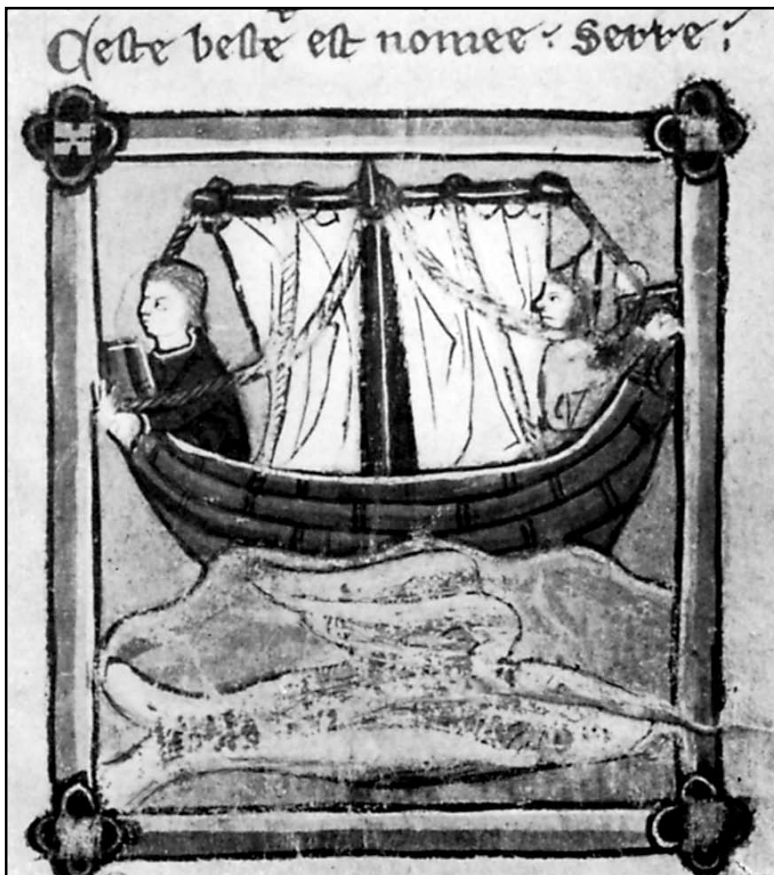 Ceste beste est nomee : Serre :